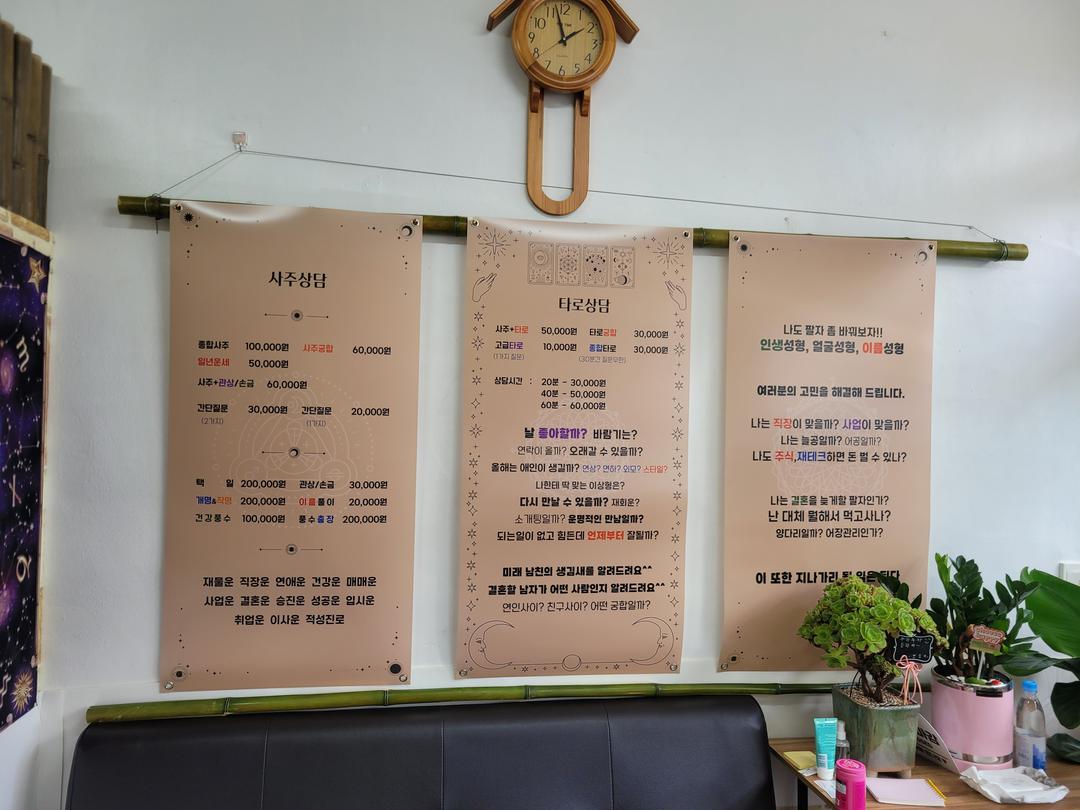 사주상담
종합사주 100,000원 사주궁합 60,000원
일년운세 50,000원
사주+관상/손금 60,000원
간단질문 30,000원 간단질문 20,000원
(2가지) (1가지)
택 일 200,000원 관상/손금 30,000원
개명&작명 200,000원 이름풀이 20,000원
건강풍수 100,000원 풍수출장 200,000원
재물운 직장운 연애운 건강운 매매운
사업운 결혼운 승진운 성공운 입시운
취업운 이사운 적성진로
타로상담
사주+타로 50,000원 타로궁합 30,000원
고급타로 10,000원 종합타로 30,000원
(1가지 질문) (30분간 질문무한)
상담시간 : 20분 - 30,000원
40분 - 50,000원
60분 - 60,000원
날 좋아할까? 바람기는?
연락이 올까? 오래갈 수 있을까?
올해는 애인이 생길까? 연상? 연하? 외모? 스타일?
나한테 딱 맞는 이상형은?
다시 만날 수 있을까? 재회운?
소개팅일까? 운명적인 만남일까?
되는일이 없고 힘든데 언제부터 잘될까?
미래 남친의 생김새를 알려드려요^^
결혼할 남자가 어떤 사람인지 알려드려요^^
연인사이? 친구사이? 어떤 궁합일까?
나도 팔자 좀 바꿔보자!!
인생성형, 얼굴성형, 이름성형
여러분의 고민을 해결해 드립니다.
나는 직장이 맞을까? 사업이 맞을까?
나는 늘공일까? 어공일까?
나도 주식,재테크하면 돈 벌 수 있나?
나는 결혼을 늦게할 팔자인가?
난 대체 뭘해서 먹고사나?
양다리일까? 어장관리인가?
이 또한 지나가리
12
1
2
3
4
5
6
7
8
9
10
11